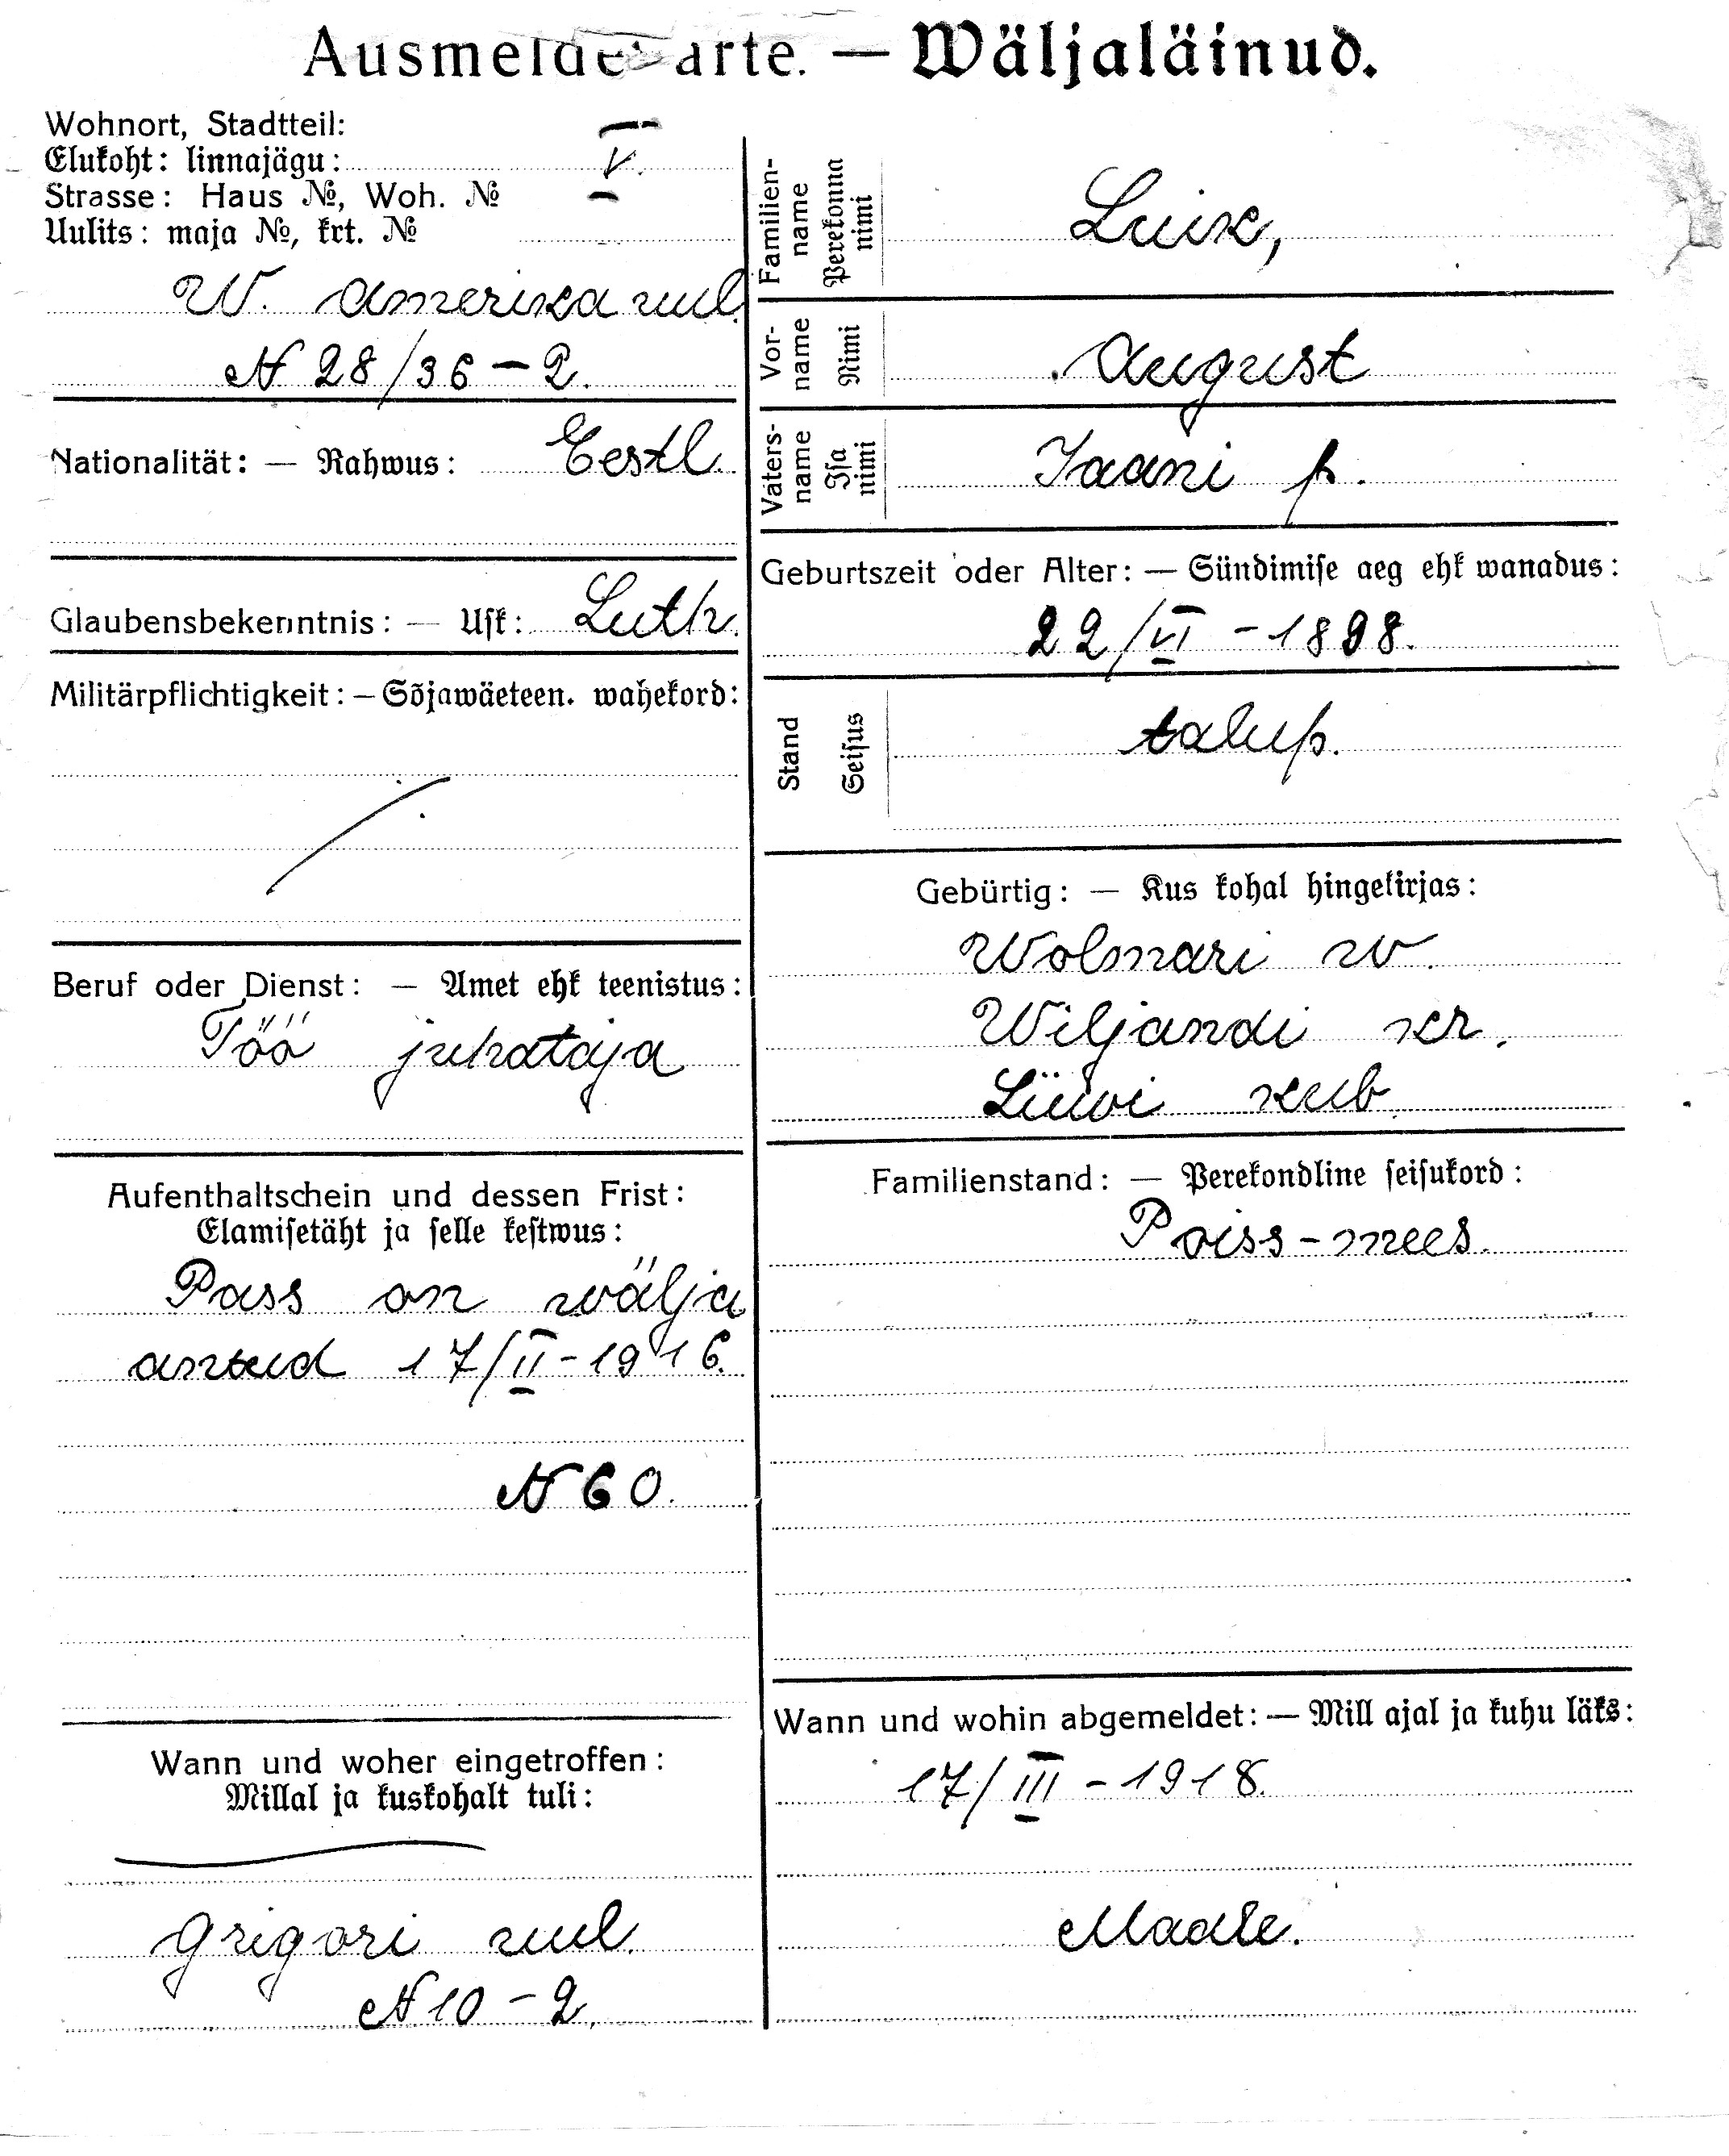 Ausmeldekarte. — Wäljaläinud.
Wohnort, Stadtteil:
Elukoht: linnajägu: V.
Strasse: Haus №, Woh. №
Uulits: maja №, krt. №
W. Amerika uul.
N 28/36 – 2.
Nationalität: — Rahwus: Eestl.
Glaubensbekenntnis: — Usk: Luth.
Militärpflichtigkeit: — Sõjawäeteen. wahekord:
Beruf oder Dienst: — Amet ehk teenistus:
Töö juhataja
Aufenthaltschein und dessen Frist:
Elamisetäht ja selle kestwus:
Pass on wälja
antud 17/II – 1916.
N 60.
Wann und woher eingetroffen:
Millal ja kuskohalt tuli:
Grigori uul.
N 10 – 2.
Familien-
name
Perekonna
nimi
Luik,
Vor-
name
Nimi
August
Vaters-
name
Isa
nimi
Jaani p.
Geburtszeit oder Alter: — Sündimise aeg ehk wanadus:
22/VI – 1898.
Stand
Seisus
talup.
Gebürtig: — Kus kohal hingekirjas:
Wolmari w.
Wiljandi kr.
Liiwi kub.
Familienstand: — Perekondline seisukord:
Poiss-mees.
Wann und wohin abgemeldet: — Mill ajal ja kuhu läks:
17/III – 1918.
Maale.